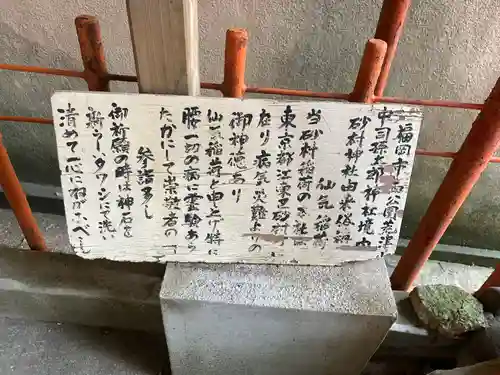 福岡市 西公園 荒津
中司孫太郎神社境内
砂村神社由来伝説
仙気稲荷
当砂村稲荷の本社
東京都江東区砂村
在り病気災難よりの
御神徳あり
仙気稲荷と申し特に
腰一切の病に霊験あら
たかにして崇敬者の
参詣多し
御祈願の時は神石を
新シータワシにて洗い
清めて一心に